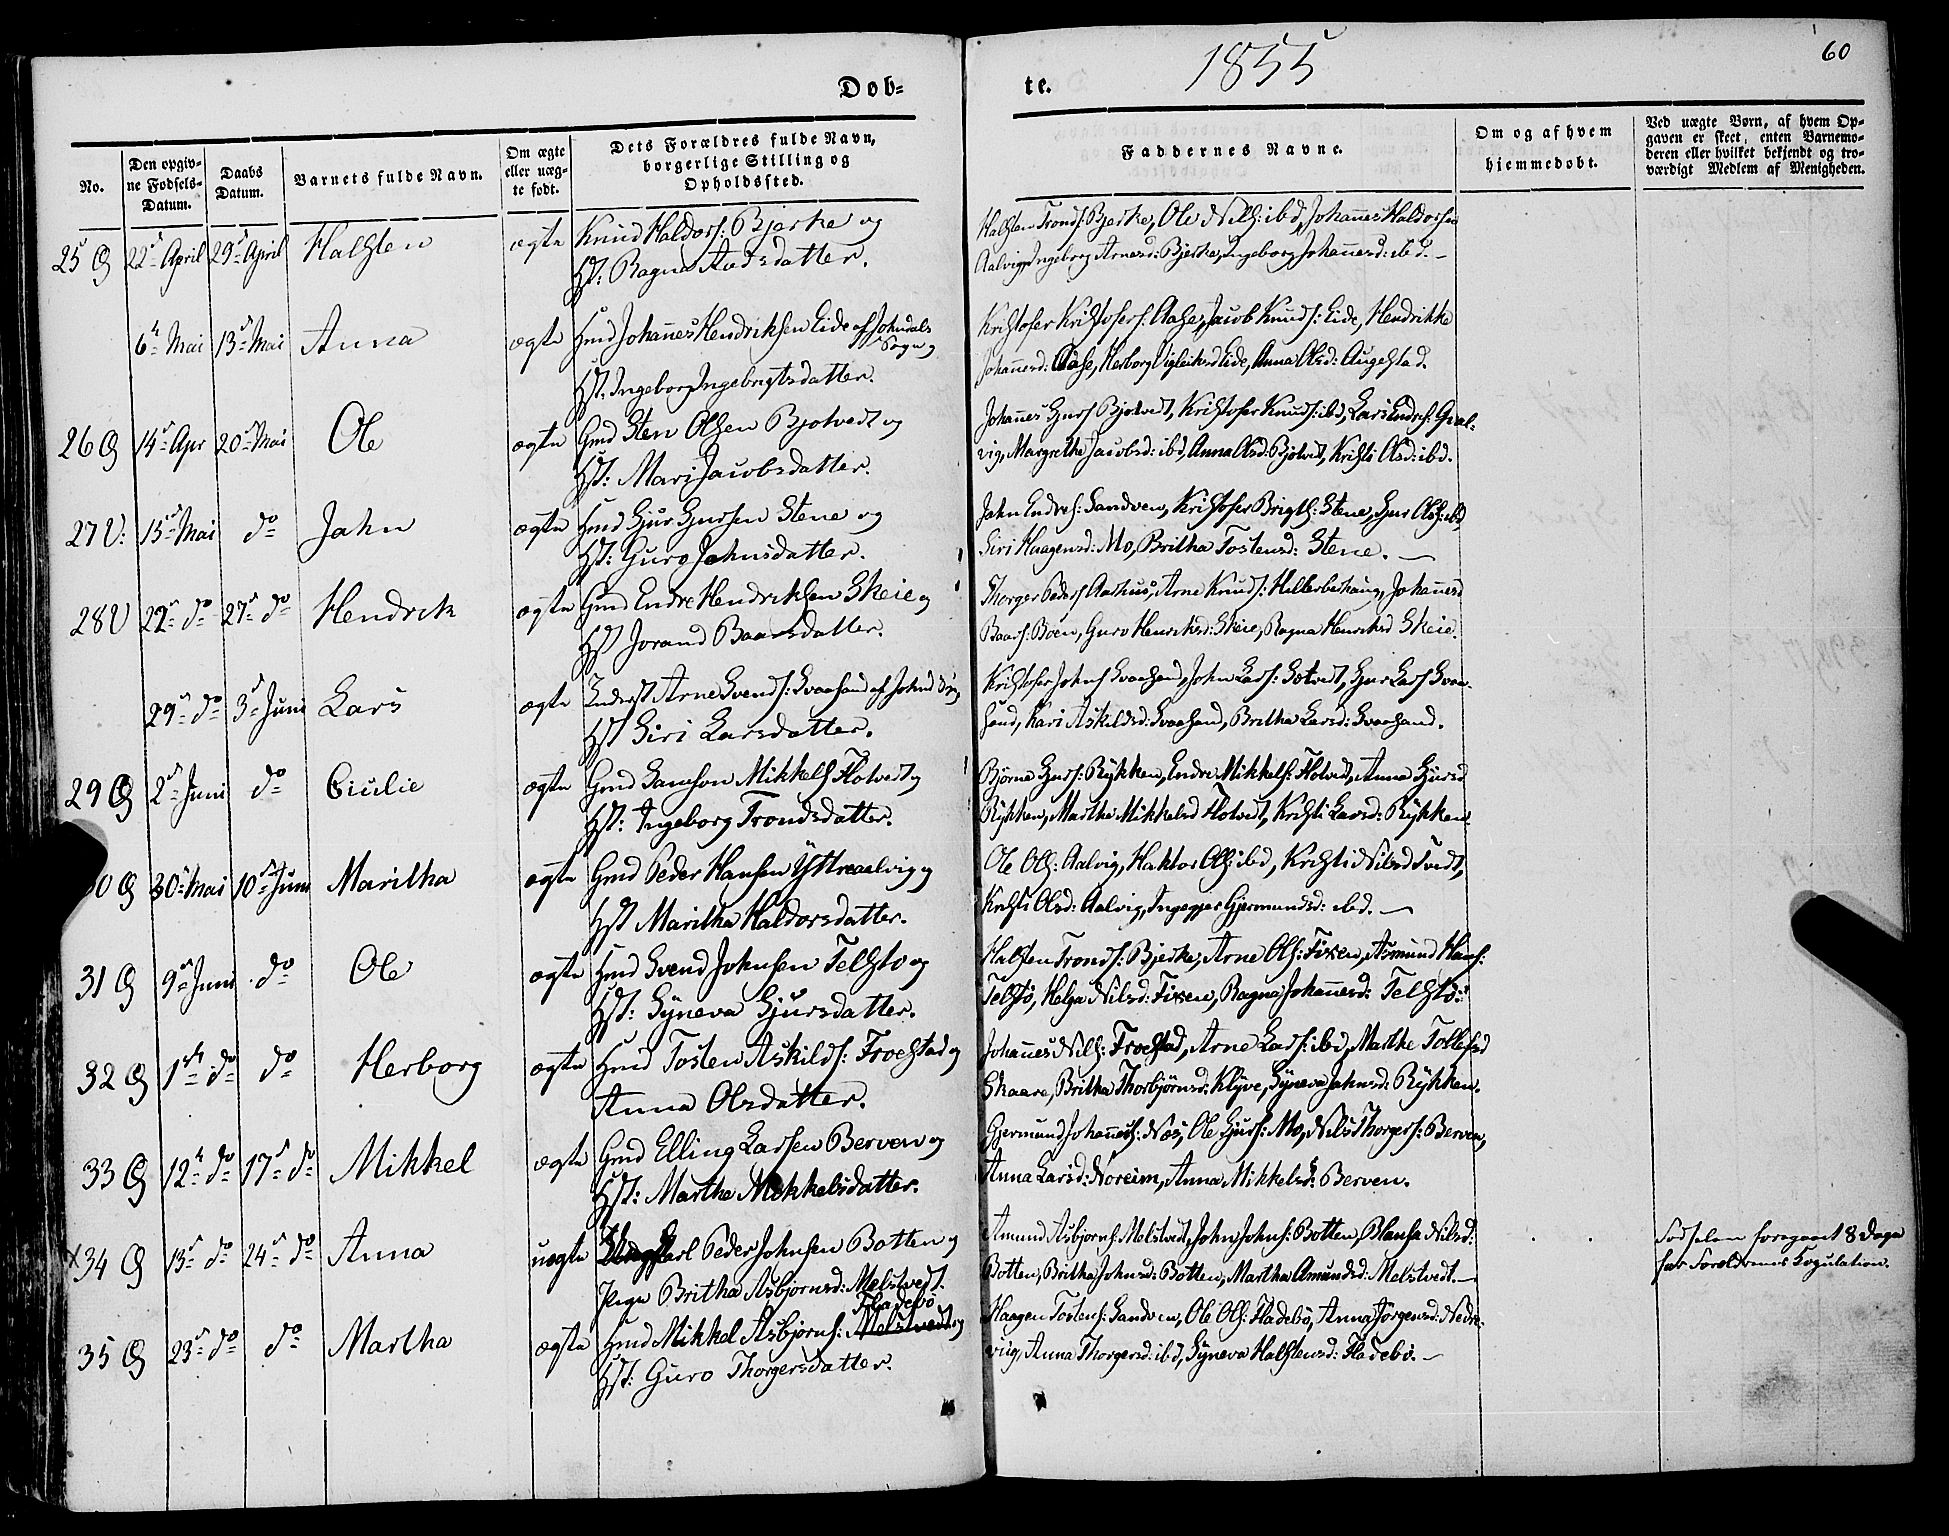 Døb-
te.
1855
60
No.
Den opgiv-
ne Fødsels-
Datum.
Daabs
Datum.
Barnets fulde Navn.
Om ægte
eller uæg-
te født.
Dets Forældres fulde Navn,
borgerlige Stilling og
Opholdssted.
Faddernes Navne.
Om og af hvem
hjemmedøbt.
Ved uægte Børn, af hvem Op-
gaven er skeet, enten Barnemo-
deren eller hvilket bekjendt og tro-
værdigt Medlem af Menigheden.
25 22 April 29 April Halsten ægte Knud Haldors: Bjerke og
Hst: Ragna Aadsdatter.
Halsten Tronds: Bjerke, Ole Nils: ibd, Johannes Haldorsen
Aalvig, Ingeborg Arnesd: Bjerke, Ingeborg Johannesd: ibd.
6 Mai 13 Mai Anna ægte Hmd Johannes Hendriksen Eide af Johndals
Sogn og
Hst. Ingeborg Ingebrigtsdatter.
Kristofer Kristofers: Aase, Jacob Knuds: Eide, Hendrikke
Johannesd: Aase, Herborg Vigleiksd Eide, Anna Olsd: Augestad.
26 14 Apr 20 Mai Ole ægte Gmd Sten Olsen Bjotvedt og
Hst: Mari Jacobsdatter.
Johannes Gjurs Bjotvedt, Kristofer Knuds: ibd, Lars Endres: Gral-
vig, Margrethe Jacobsd: ibd, Anna Olsd: Bjotvedt, Kristi Olsd: ibd.
27 V: 15 Mai do Jahn ægte Hmd Gjur Gjursen Stene og
Hst: Guro Johnsdatter.
Jahn Endres: Sandven, Kristofer Brigts: Stene, Gjur Ols: ibd,
Siri Haagensd: Mo, Britha Tostensd: Stene.
28 V 22 do 27 do Hendrik ægte Gmd Endre Hendriksen Skeie og
Hst Jorand Baarsdatter.
Thorger Peders Aarhus, Arne Knuds: Hallerbakhaug, Johannes
Baars: Böen, Guro Henriksd: Skeie, Ragna Henriksd Skeie.
29 do 3 Juni Lars ægte Inderst Arne Svends: Svaasand af Johnd Sogn
Hst Siri Larsdatter.
Kristofer Johns Svaasand, John Lars: Sætvedt, Gjur Lars Svaa-
sand, Kari Askildsd: Svaasand, Britha Larsd: Svaasand.
29 2 Juni do Cicilie ægte Gmd Samson Mikkels Flotvedt og
Hst: Ingeborg Trondsdatter.
Bjørne Gjurs: Rykken, Endre Mikkels: Flotvedt, Anna Gjursd
Rykken, Martha Mikkelsd Flotvedt, Kristi Larsd: Rykken.
30 30 Mai 10 Juni Maritha ægte Gmd Peder Hansen Yttreaalvig og
Hst Maritha Haldorsdatter.
Ole Ols: Aalvig, Haktor Ols: ibd, Kristi Nilsd Tvedt,
Kristi Olsd: Aalvig, Ingegjer Gjermundsd: ibd.
31 9 Juni do Ole ægte Hmd Svend Johnsen Telstø og
Hst: Syneva Gjursdatter.
Halsten Tronds: Bjerke, Arne Ols: Fixen, Asmund Hans:
Telstø, Helga Nilsd: Fixen, Ragna Johannesd: Telstø.
32 1 do do Herborg ægte Hmd Tosten Askilds: Froestad og
Anna Olsdatter.
Johannes Nils: Froestad, Arne Lars: ibd, Martha Tollefsd
Skaare, Britha Thorbjørnsd: Klyve, Syneva Jahnsd: Rykken.
33 12 do 17 do Mikkel ægte Gmd Elling Larsen Berven og
Hst: Martha Mikkelsdatter.
Gjermund Johannes: Næs, Ole Gjurs: Mo, Nils Thorgers: Berven,
Anna Larsd: Noreim, Anna Mikkelsd: Berven.
x34 13 do 24 do Anna uægte Ungkarl Peder Johnsen Botten og
Pige Britha Asbjørnsd: Melstvedt.
Amund Asbjørns: Melstvedt, John Johns: Botten, Blansa Nilsd:
Botten, Britha Johnsd: Botten, Martha Amundsd: Melstvedt.
Fødselen foregaaet 8 Dage
før Forældrenes Kopulation.
35 23 do do Martha ægte Hmd Mikkel Asbjørns: Melstvedt og
Fladebø
Hst: Guro Thorgersdatter.
Haagen Tostens: Sandven, Ole Ols: Fladebø, Anna Jørgensd: Nedre-
vig, Anna Thorgersd: ibd, Syneva Halstensd: Fladebø.